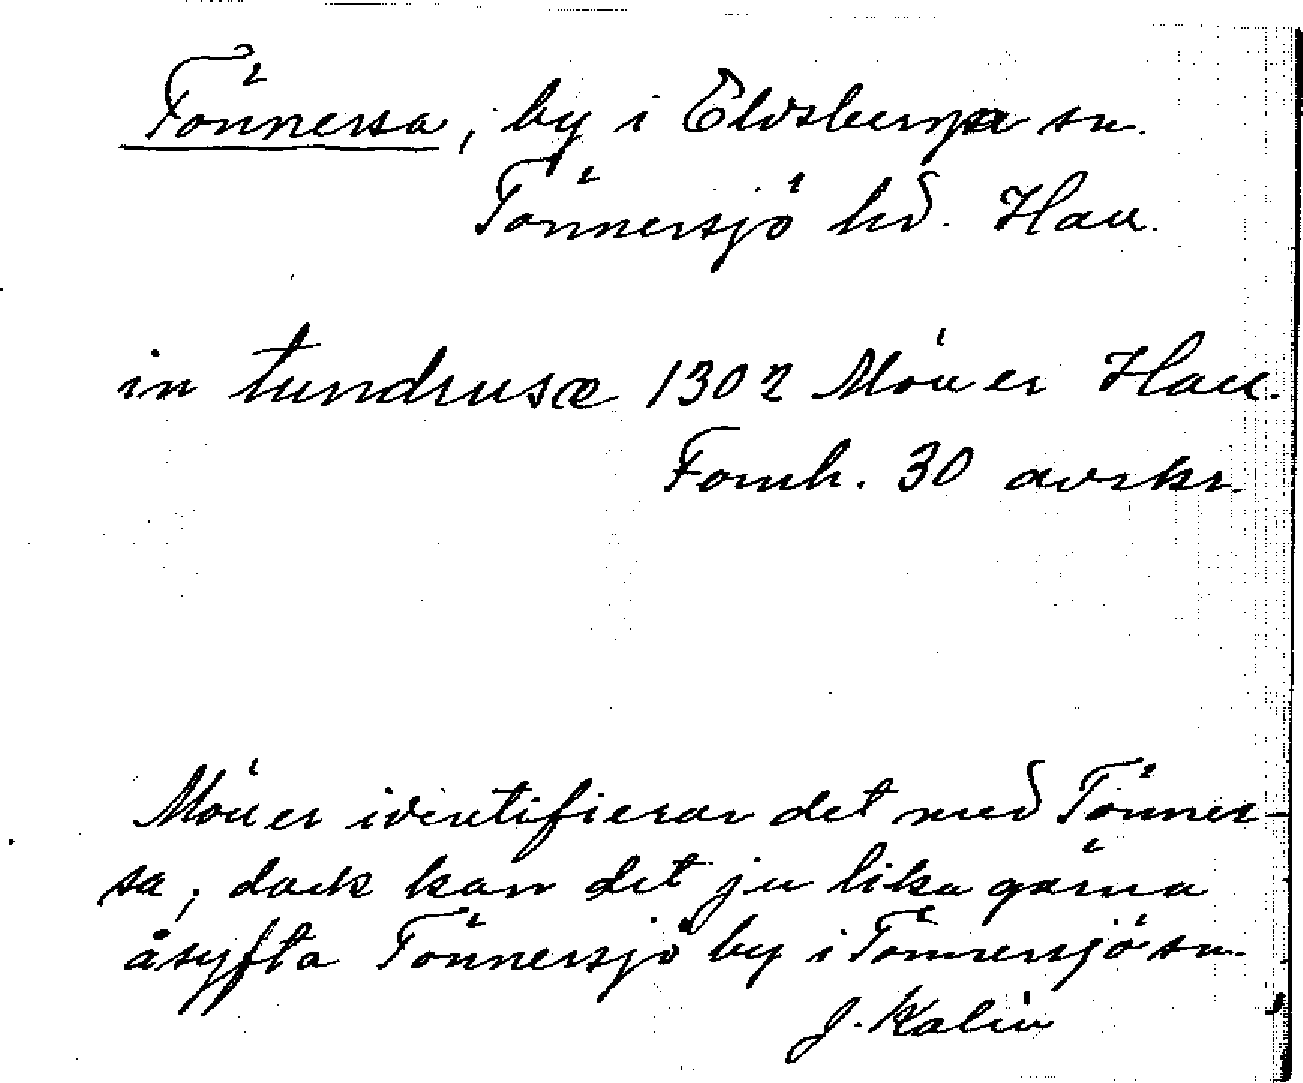 Tönnersa, by i Eldsberga sn.
Tönnersjö hd. Hall.
in tundrusæ 1302 Möller Hall.
Fornh. 30 avskr.
Möller identifierar det med Tönner-
sa, dock kan det ju lika gärna
åsyfta Tönnersjö by i Tönnersjö sn.
J. Kalén